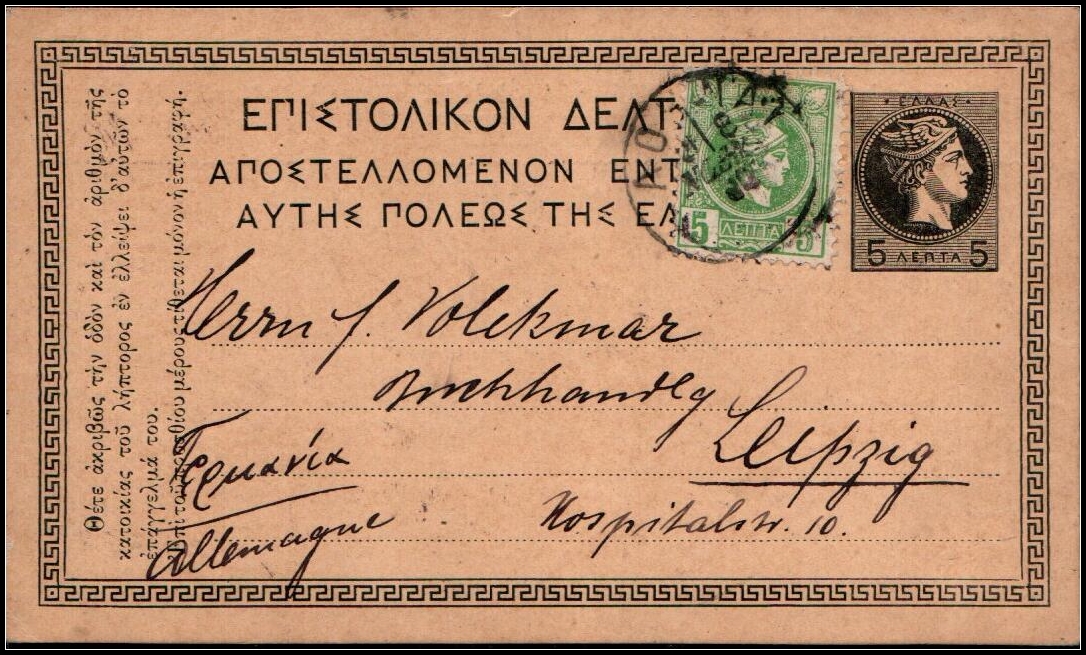 ΕΠΙΣΤΟΛΙΚΟΝ ΔΕΛΤ
ΑΠΟΣΤΕΛΛΟΜΕΝΟΝ ΕΝΤ
ΑΥΤΗΣ ΠΟΛΕΩΣ ΤΗΣ ΕΛ
5 ΛΕΠΤΑ 5
ΕΛΛΑΣ
5 ΛΕΠΤΑ 5
Herrn f. Volckmar
Buchhandlg
Leipzig
Hospitalstr. 10.
Γερμανία
Allemagne
Θέτε ἀκριβῶς τὴν ὁδὸν καὶ τὸν ἀριθμὸν τῆς
κατοικίας τοῦ λήπτορος ἐν ἐλλείψει δ'αὐτῶν τὸ
ἐπάγγελμα του.
μέρους τίθεται μόνον ἡ ἐπιγραφή.